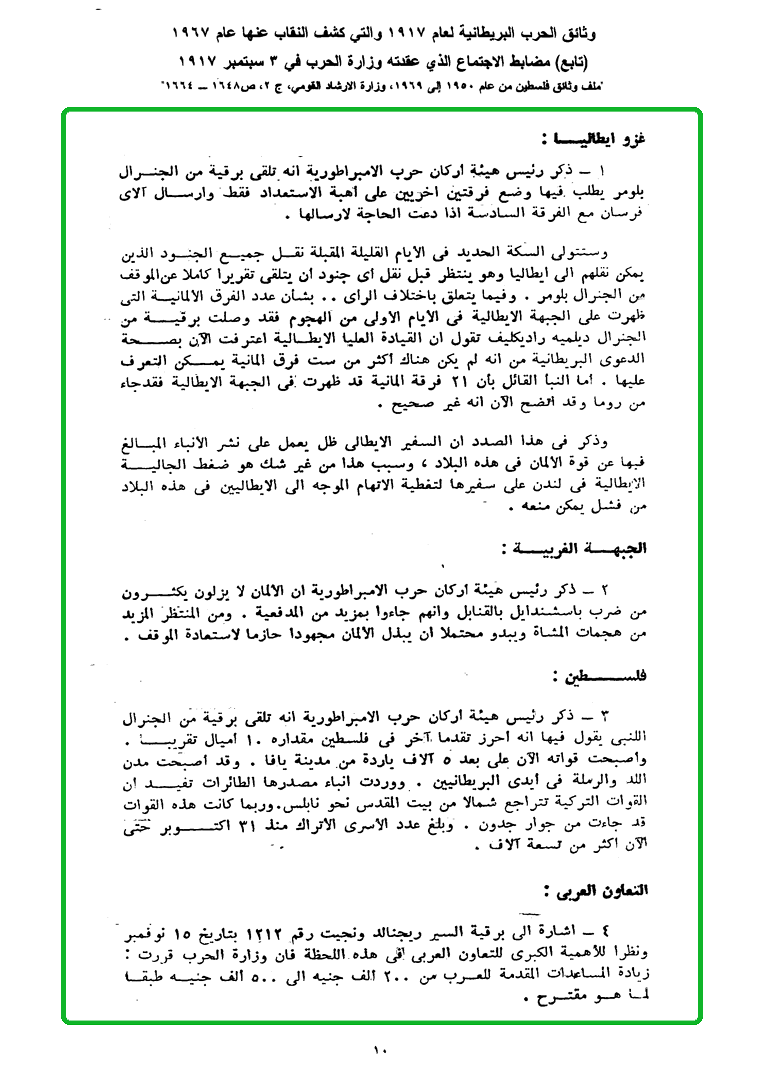 وثائق الحرب البريطانية لعام ١٩١٧ والتي كشف النقاب عنها عام ١٩٦٧
(تابع) مضابط الاجتماع الذي عقدته وزارة الحرب في ٣ سبتمبر ١٩١٧
"ملف وثائق فلسطين من عام ١٩٥٠ إلى ١٩٦٩، وزارة الارشاد القومي، ج ٢، ص١٦٤٨ ــ ١٦٦٤"
غزو ايطاليـــا :
١ ــ ذكر رئيس هيئة اركان حرب الامبراطورية انه تلقى برقية من الجنرال
بلومر يطلب فيها وضع فرقتين اخريين على أهبة الاستعداد فقط وارسال آلاى
فرسان مع الفرقة السادسة اذا دعت الحاجة لارسالها .
وستتولى السكة الحديد فى الايام القليلة المقبلة نقــل جميــع الجنــود الذين
يمكن نقلهم الى ايطاليا وهو ينتظر قبل نقل اى جنود ان يتلقى تقريرا كاملا عن الموقف
من الجنرال بلومر . وفيما يتعلق باختلاف الراى .. بشأن عدد الفرق الالمانيــة التى
ظهرت على الجبهة الايطالية فى الايام الاولى من الهجوم فقد وصلت برقيــــة من
الجنرال دبلميه راديكليف تقول ان القيادة العليا الايطالية اعترفت الآن بصــحة
الدعوى البريطانية من انه لم يكن هناك اكثر من ست فرق المانية يمــــكن التعرف
عليها . اما النبأ القائل بأن ٢١ فرقة المانية قد ظهرت فى الجبهة الايطالية فقدجاء
من روما وقد اتضح الآن انه غير صحيح .
وذكر فى هذا الصدد ان السفير الايطالى ظل يعمل على نشر الانباء المبــالغ
فيها عن قوة الالمان فى هذه البلاد ، وسبب هذا من غير شك هو ضغط الجاليــــة
الايطالية فى لندن على سفيرها لتغطية الاتهام الموجه الى الايطاليين فى هذه البلاد
من فشل يمكن منعه .
الجبهــة الغربيــة :
٢ ــ ذكر رئيس هيئة اركان حرب الامبراطورية ان الالمان لا يزلون يكثــــرون
من ضرب باسشندايل بالقنابل وانهم جاءوا بمزيد من المدفعية . ومن المنتظر المزيد
من هجمات المشاة ويبدو محتملا ان يبذل الالمان مجهودا حازما لاستعادة الموقف .
فلســــطين :
٣ ــ ذكر رئيس هيئة اركان حرب الامبراطورية انه تلقى برقية من الجنرال
اللنبى يقول فيها انه احرز تقدما آخر فى فلسطين مقداره ١٠ اميال تقريبــــا .
واصبحت قواته الآن على بعد ٥ آلاف ياردة من مدينة يافا . وقد اصبحت مدن
اللد والرملة فى ايدى البريطانيين . ووردت انباء مصدرها الطائرات تفيــــد ان
القوات التركية تتراجع شمالا من بيت المقدس نحو نابلس.وربما كانت هذه القوات
قد جاءت من جوار جدون . وبلغ عدد الاسرى الاتراك منذ ٣١ اكتــــوبر حتى
الآن اكثر من تسعة آلاف .
التعاون العربى :
٤ ــ اشارة الى برقية السير ريجنالد ونجيت رقم ١٢١٢ بتاريخ ١٥ نوفمبر
ونظرا للأهمية الكبرى للتعاون العربى فى هذه اللحظة فان وزارة الحرب قررت :
زيادة المساعدات المقدمة للعرب من ٢٠٠ الف جنيه الى ٥٠٠ الف جنيــه طبقــا
لمــا هــو مقتــرح .
١٠